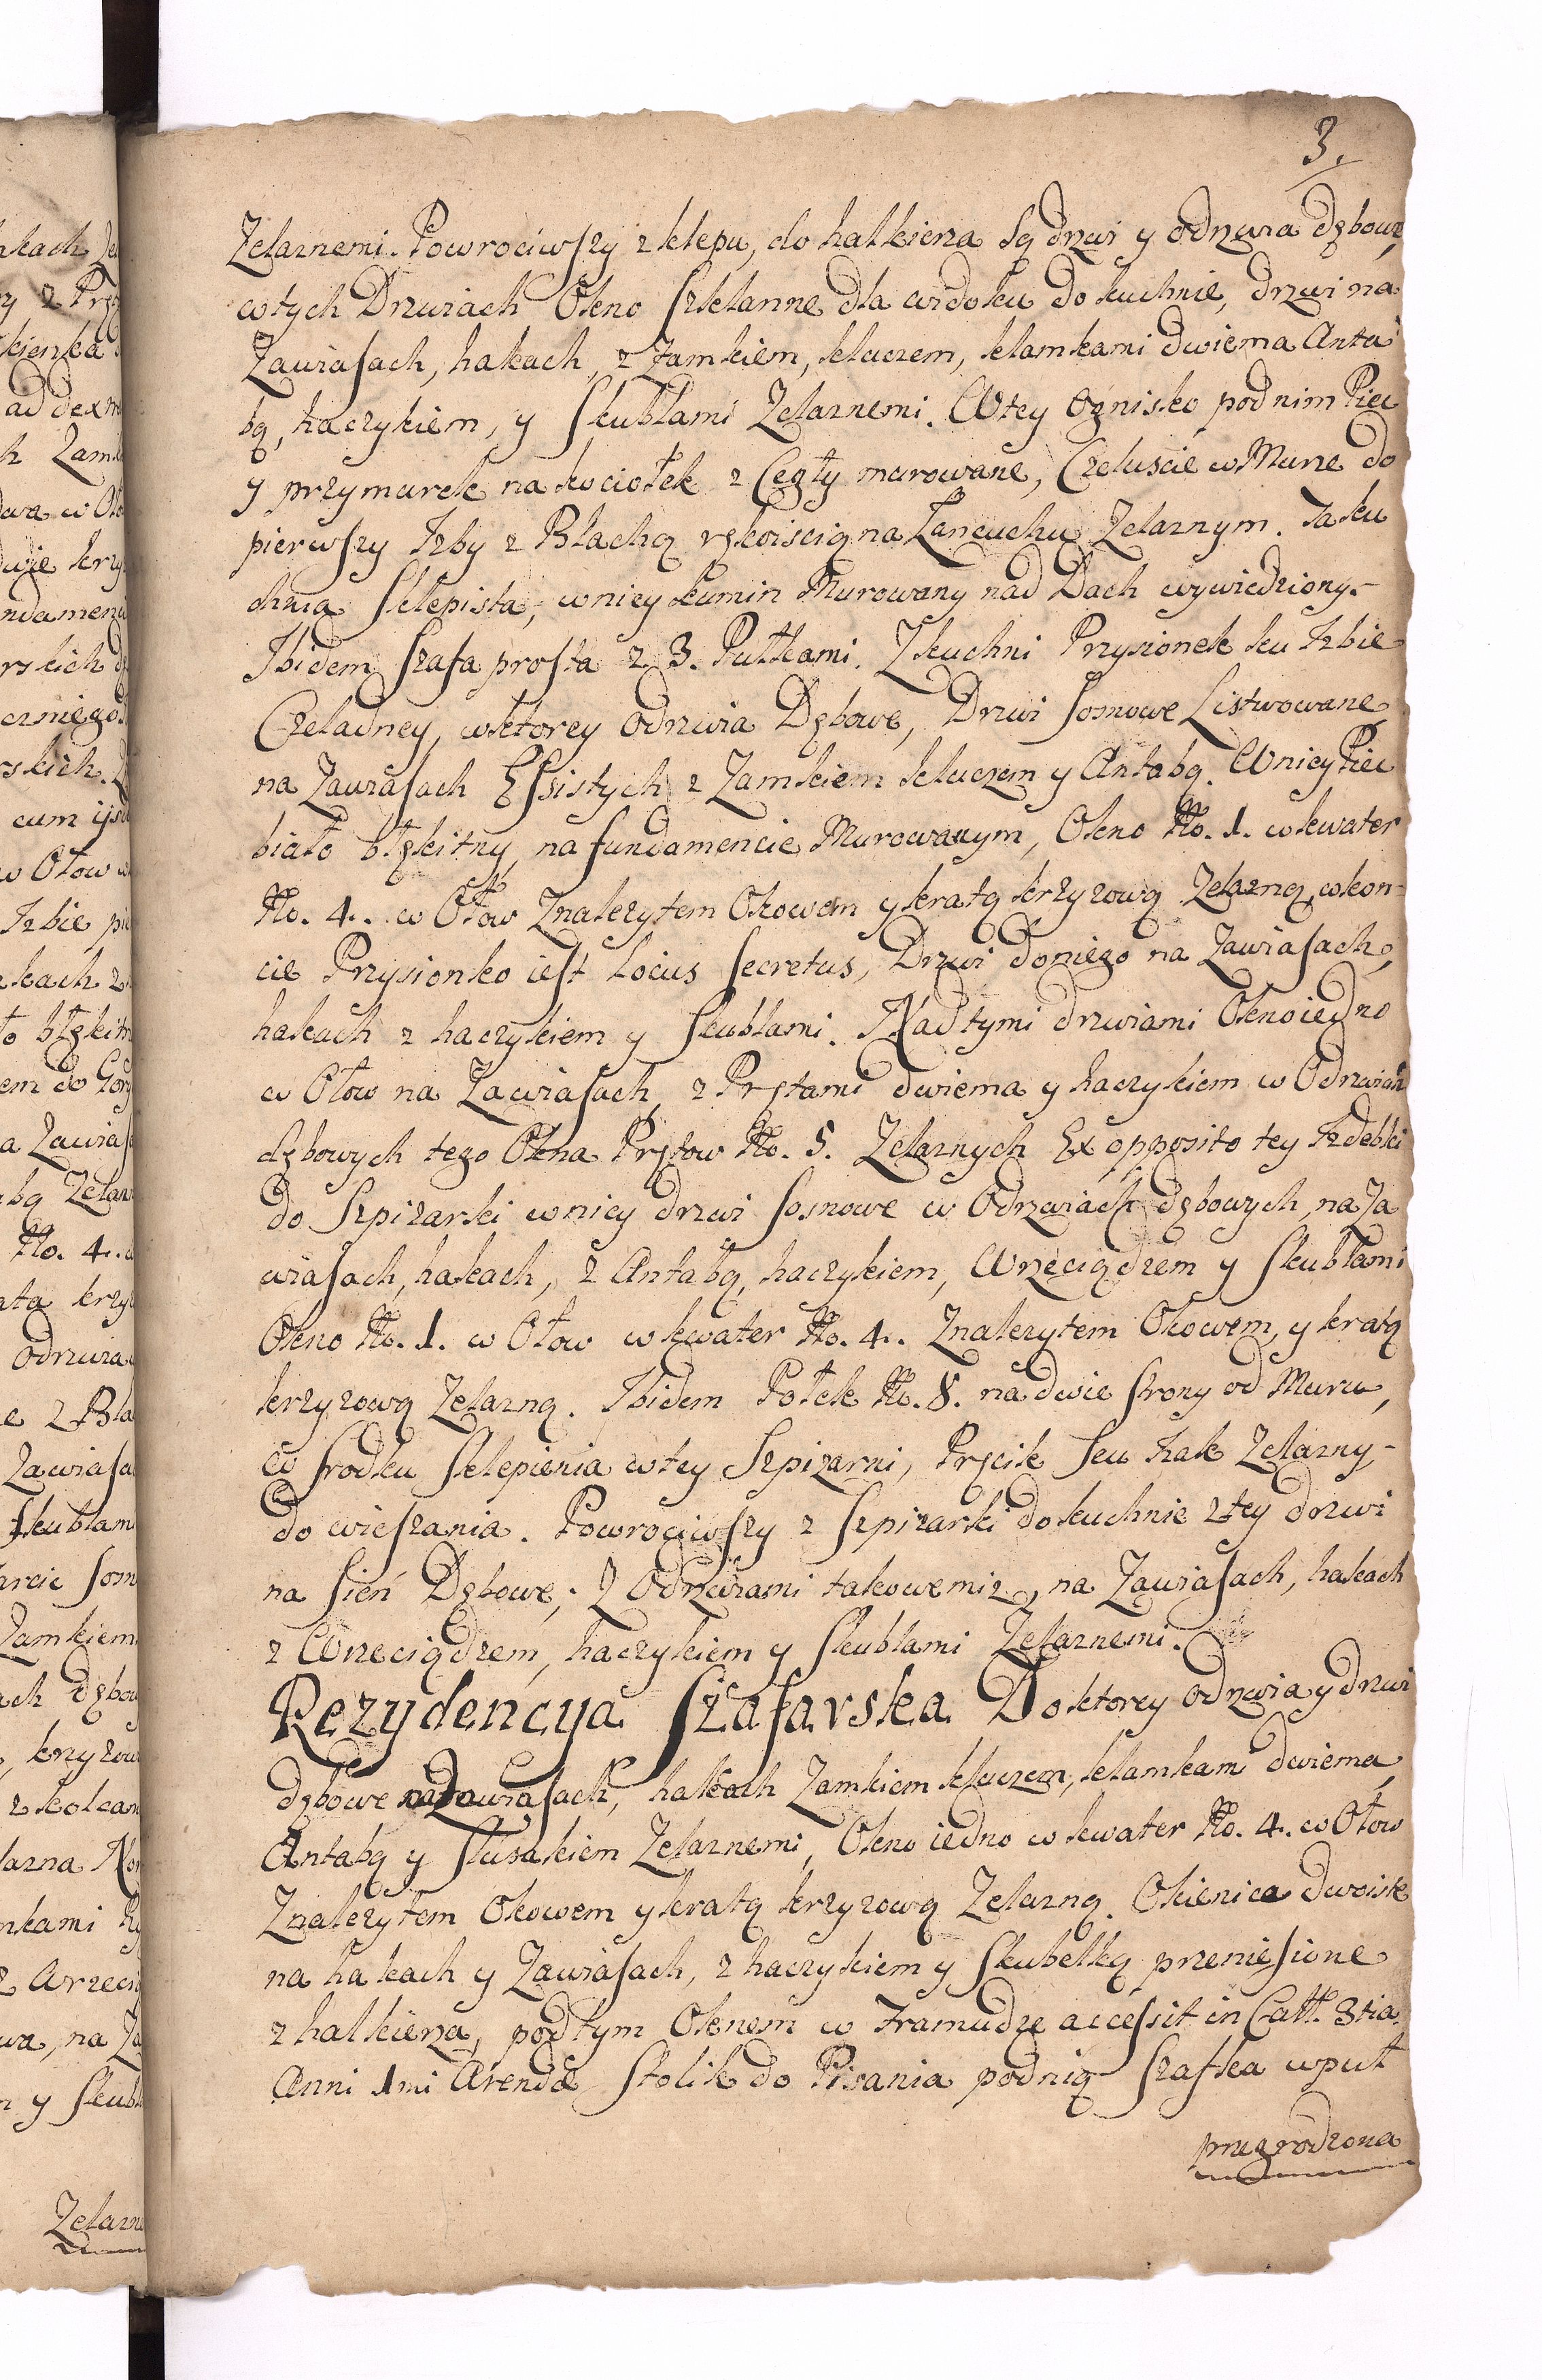 3.
Zelaznemi. Powrociwszy z sklepu, do halkierza są drzwi y odrzwia dębowe,
wtych Drzwiach Okno szklanne dla widoku do kuchnie, drzwi na
Zawiasach, hakach, z Zamkiem, kluczem, klamkami dwiema Anta
bą, haczykiem, y skublami Zelaznemi. Wtey Ognisko, pod nim Piec
y przymurek na kociołek z Cegły murowane, Czeluscie w Murze do
pierwszy Izby z Blachą rękoiscią na Łancuchu Zelaznym. Ta ku
chnia sklepista, wniey kumin Murowany nad Dach wywiedziony.
Ibidem szafa prosta z 3. Pułkami. Z kuchni Przysionek ku Izbie
Czeladney, wktorey odrzwia Dębowe, Drzwi sosnowe Listwowane
na Zawiasach Essistych z Zamkiem kluczem y Antabą. Wniey Piec
biało błękitny, na fundamencie Murowanym, Okno No. 1. w kwater
No. 4. w Ołow Znalezytem Okowem y kratą krzyzową Zelazną, wkon-
cie Przysionko iest Locus secretus, Drzwi doniego na Zawiasach,
hakach z haczykiem y skublami. Nad tymi drzwiami Okno iedno
w Ołow na Zawiasach, z Prętami dwiema y haczykiem w Odrzwiach
dębowych tego Okna Prętow No. 5. Zelaznych Ex opposito tey Izdebki
do Szpizarski wniey drzwi sosnowe w Odrzwiach dębowych, na Za
wiasach, hakach, z Antabą, haczykiem, Wrzeciądzem y skublami
Okno No. 1. w Ołow w kwater No. 4. Znalezytem Okowem, y kratą
krzyzową Zelazną. Ibidem Połek No. 8. na dwie strony od Muru,
w srodku sklepienia wtey Szpizarni, Pręcik seu hak Zelazny
do wieszania. Powrociwszy z Szpizarski do kuchnie ztey drzwi
na sień Dębowe, Z Odrzwiami takowemiz, na Zawiasach, hakach
z Wrzeciądzem, haczykiem y skublami Zelaznemi.
Rezydencya Szafarska Doktorey odrzwia y drzwi
dębowe na Zawiasach, hakach Zamkiem kluczem, klamkam dwiema
Antabą y Zelaznemi, Okno iedno w kwater No. 4. w Ołow
Znalezytem Okowem y kratą krzyzową Zelazną. Okienica dwoiste
na hakach y Zawiasach, z haczykiem y skubelką przeniesione
z halkierza, pod tym Oknem w framudze accessit in Catt. 3tia
Anni 1mi Arendæ Stolik do Pisania podnią szafka wpuł
przegrodzona